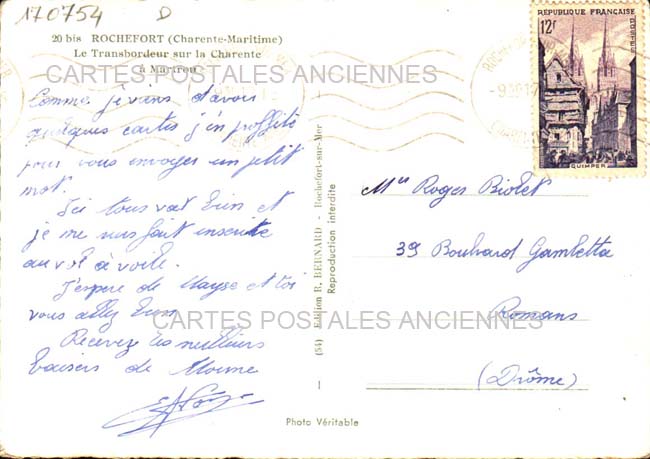 170754 D
20 bis ROCHEFORT (Charente-Maritime)
Le Transbordeur sur la Charente
à Martrou
CARTES POSTALES ANCIENNES
Comme je viens d'avoir
quelques cartes j'en proffite
pour vous envoyer un petit
mot.
Ici tous vat bien et
je me suis fait inscrire
au vol à voile.
J'espère de Mayse et toi
vous allez bien
Recevez les meilleurs
baisers de
(54) Edition R. BERNARD - Rochefort-sur-Mer
Reproduction interdite
I
Photo Véritable
RÉPUBLIQUE FRANÇAISE
12F
POSTES
QUIMPER
Roger Biolet
39 Boulvard Gambetta
Romans
(Drôme)
CARTES POSTALES ANCIENNES